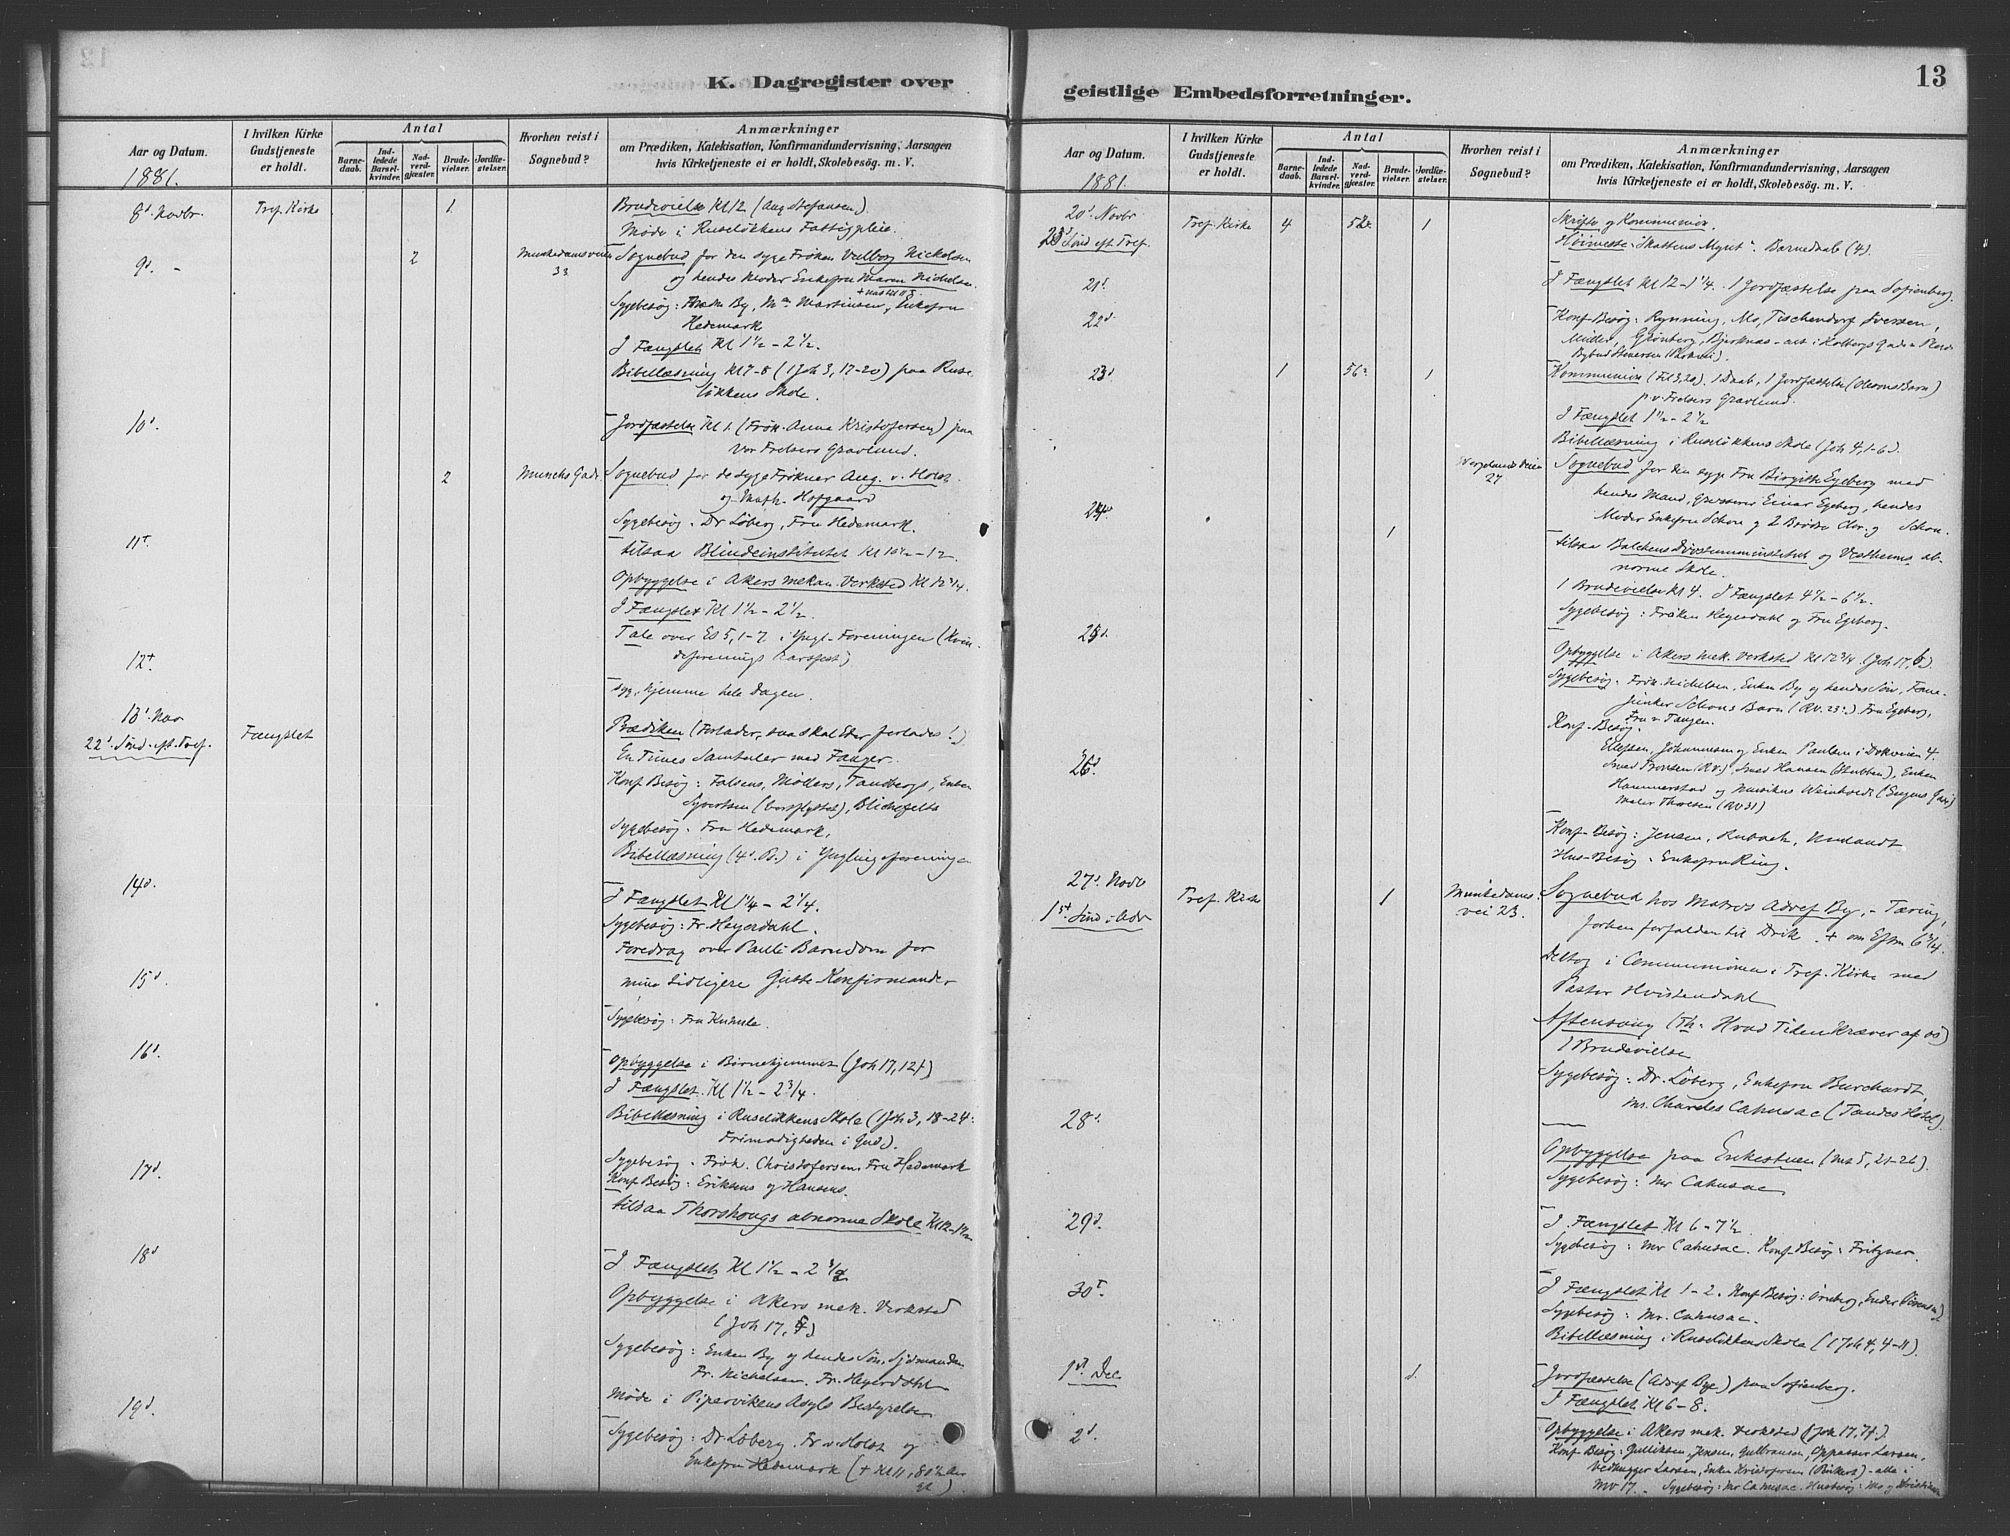 K. Dagregister over
Aar og Datum.
I hvilken Kirke Gudstjeneste er holdt.
Antal
Barnedaab.
Indledede Barselkvinder.
Nadverdgjæster.
Brudevielser.
Jordfæstelser.
Hvorhen reist i Sognebud?
Anmærkninger
om Prædiken, Katekisation, Konfirmandundervisning, Aarsagen
hvis Kirketjeneste ei er holdt, Skolebesög. m. V.
1881.
8d. Novbr. Tref. Kirke 1. Brudevielse Kl 12 (Aug Stefansen).
Møde i Ruseløkkens Fattigpleie.
9d. - 2 Munkedamsveien 33 Sognebud for den syge Frøken Valborg Nickelsen
og hendes Moder Enkefru Maren Nickelsen.
Sygebesøg: By, Martinsen, Enkefru
Hedemark
I Fængslet Kl 1½ - 2½.
Bibellæsning Kl 7-8 (1 Joh 3, 17-20) paa Ruse-
løkkens Skole.
10d. Jordfæstelse Kl 1. (Frøk. Anna Kristofersen) paa
Vor Frelsers Gravlund.
2 Munchs Gade Sognebud for de syge Frøkner Aug. v. Holst
og Math. Hofgaard
Sygebesøg. Dr Løberg, Fru Hedemark.
11t. tilsaa Blindeinstitutet Kl 10½ - 12.
Opbyggelse i Akers mekan. Verksted Kl 12¾.
I Fængslet Kl 1½ - 2½.
Tale over Es 5, 1-7 i Yngl-Foreningen (Kvin-
deforenings Aarsfest)
12t. syg, hjemme hele Dagen.
13d. Nov
22d. Sønd. eft. Tref. Fængslet Prædiken (Forlader, saa skal Eder forlades!)
En Times Samtaler med Fanger.
Konf Besøg: Falsens, Møllers, Tandbergs, Enken
Syvertsen (bortflyttet), Blichfeldts
Sygebesøg. Fru Hedemark.
Bibellæsning (4d. B.) i Ynglingeforeningen
14d. I Fængslet Kl 1¼ - 2¼.
Sygebesøg: Fr. Heyerdahl.
Foredrag over Pauli Barndom for
mine tidligere Gutte-Konfirmander
15d. Sygebesøg: Fru
16d. Opbyggelse i Børnehjemmet (Joh 17, 12f)
I Fængslet. Kl 1½ - 2¾.
Bibellæsning i Ruseløkkens Skole (1 Joh 3, 18-24:
Frimodigheden i Gud).
17d. Sygebesøg. Frøk. Christofersen, Fru Hedemark
Konf Besøg: Eriksens og Hansens.
tilsaa Thorshougs abnorme Skole Kl 12-1½
18d I Fængslet Kl 1½ - 2½
Opbyggelse i Akers mek. Verksted
(Joh 17, )
Sygebesøg: Enken By og hendes Søn, Sjømanden
Fr. Nickelsen. Fr. Heyerdahl
Møde i Pipervikens Asyls Bestyrelse
19d. Sygebesøg: Dr. Løberg, Fr. v. Holst og
Enkefru Hedemark (+ Kl 11, 80½ Aar
gl.)
geistlige Embedsforretninger.
13
Aar og Datum.
I hvilken Kirke Gudstjeneste er holdt.
Antal
Barnedaab.
Indledede Barselkvinder.
Nadverdgjæster.
Brudevielser.
Jordfæstelser.
Hvorhen reist i Sognebud?
Anmærkninger
om Prædiken, Katekisation, Konfirmandundervisning, Aarsagen
hvis Kirketjeneste ei er holdt, Skolebesög. m. V.
1881.
20d. Novbr Tref. Kirke 4 52. 1 Skrifte og Kommunion.
23d Sønd eft. Tref. Høimesse "Skattens Mynt". Barnedaab (4).
21d. I Fængslet Kl 12 - 1¼. 1 Jordfæstelse paa Sofienberg.
22d Konf-Besøg: Rynning, Mo, Tischendorf Iversen,
Müller, Grønberg, Bjerknæs - alt i Holbergs Gade
Bybud Steversen
23d 1 56. 1 Kommunion (Fil 3, 20). 1 Daab, 1 Jordfæstelse (Olesens Barn)
p. v. Frelsers Gravlund.
I Fængslet 1½ - 2½
Bibellæsning i Ruseløkkens Skole (Joh 4, 1-6).
Wergelands Veien 27 Sognebud for den syge Fru Birgitte Egeberg med
hendes Mand, Grosserer Einar Egeberg, hendes
Moder Enkefru Schou og 2 Brødre Chr. og Schou.
24d 1 tilsaa Balchens Døvstummeinstitut og Vestheims ab-
norme Skole.
1 Brudevielse Kl 4. I Fængslet 4½ - 6½.
Sygebesøg: Frøken Heyerdahl og Fru Egeberg.
25d. Opbyggelse i Akers mek. Verksted Kl 12¾. (Joh 17, 6).
Sygebesøg. Frøk. Nickelsen, Enken By og hendes Søn, Fane-
junker Schous Barn (RV. 23). Fru Egeberg,
Fru v. Tangen.
Konf-Besøg.
Ellefsen, Johannesen og Enken Paulsen i Dokveien 4.
Smed Thoresen (RV.), Smed Hansen (Stubben), Enken
Hammerstad og Musikus Weinholdt (Eugens Gade)
Maler Thoresen (RV 31)
26d. Konf-Besøg: Jensen, Rubach, Umlandt
Hus-Besøg. Enkefru Ring.
27d. Novbr Tref. Kirke 1 Munkedams-
vei 23. Sognebud hos Matros Adolf By, - Tæring,
1st. Sønd. i Adv forhen forfalden til Drik. + om Eftm 6¾.
Deltog i Communionen i Tref. Kirke med
Pastor Hvistendahl
Aftensang (Th: Hvad Tiden kræver af os)
1 Brudevielse
Sygebesøg: Dr. Løberg, Enkefru Burchardt,
Mr. Charles Cahusac (Tandes Hotel).
28d. Opbyggelse paa Enkestuen (Ms 5, 21-26).
Sygebesøg: Mr Cahusac
29d. I Fængslet Kl 6 - 7½.
Sygebesøg: Mr Cahusac. Konf Besøg: Fritzner.
30t. I Fængslet Kl 1 - 2. Konf Besøg: Ørneberg, Enken Sørensen
Sygebesøg: Mr. Cahusac.
Bibellæsning i Ruseløkkens Skole (1 Joh 4, 4-11).
1st Dec. 1. Jordfæstelse (Adolf Bye) paa Sofienberg.
I Fængslet Kl 6 - 8.
2d. Opbyggelse i Akers mek. Verksted (Joh 17, 7f).
Konf Besøg: Gulliksen, Jensen, Gulbransen, Oppasser Larsen,
Vedhugger Larsen, Enken Kristofersen - alle i
MV 17. Sygebesøg: Mr Cahusac. Husbesøg: Mo og